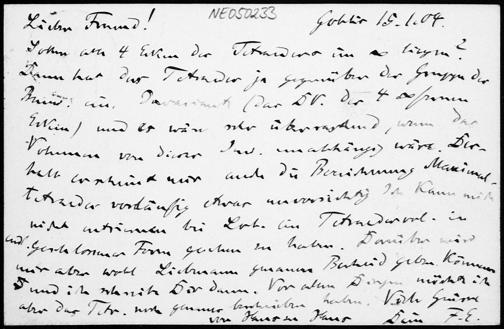 Lieber Freund! NE050233 Gohlis 15.1.04.
Sollen alle 4 Ecken des Tetraeders im ∞ liegen?
Dann hat das Tetraeder ja gegenüber der Gruppe der
ein Invariant (das DV. der 4 ∞fernen
Ecken) und es wäre sehr überraschend, wenn das
Volumen von dieser Inv. unabhängig wäre. Des-
halb erscheint mir auch die Bezeichnung Maximal-
tetraeder vorläufig etwas unvorsichtig. Ich kann mich
nicht entsinnen bei Lob. ein Tetraedervol. in
geschlossener Form gesehen zu haben. Darüber wird
mir aber wohl Liebmann genauen Bescheid geben können
und ich schreibe Dir dann. Vor allen Dingen möchte ich
aber das Tetr. noch genauer beschrieben haben. Viele Grüsse
von Haus zu Haus Dein F.E.